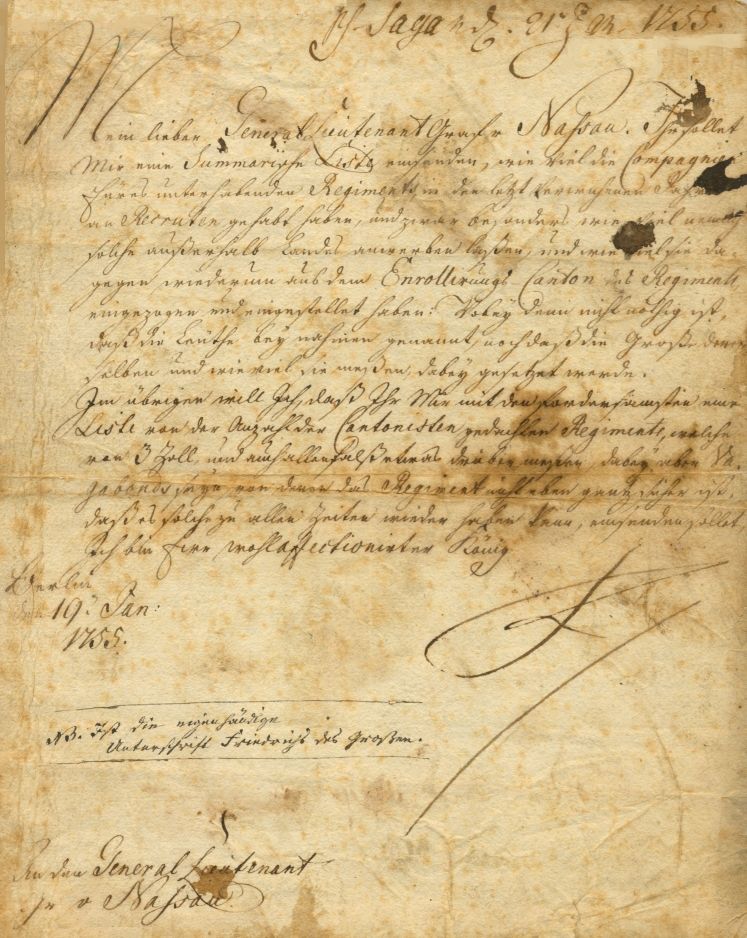 Sagan d. 21t Jan. 1755.
Mein lieber General Lieutenant Graf v Nassau. Ihr sollet
Mir eine Summarische Liste einsenden, wie viel die Compagnien
Eures unterhabenden Regiments, in den letzt verwichenen
an Recruten gehabt haben, und zwar besonders wie viel
solche außerhalb Landes anwerben laßen, und wie viel sie da-
gegen wiederum aus dem Enrollirungs Canton des Regiments
eingezogen und eingestellet haben: Wobey denn nicht nöthig ist,
daß die Leüthe bey nahmen genannt, noch daß die Größe
selben und wie viel sie meßen, dabey gesetzet werde.
Im übrigen will Ich, daß Ihr Mir mit dem fordersamsten eine
Liste von der Anzahl der Cantonisten gedachten Regiments, welche
von 3 Zoll, und auch allenfalß etwas drüber meßen, dabey aber Va-
gabonds seyn von denen das Regiment nicht eben ganz sicher ist,
daß es solche zu allen Zeiten wieder haben kann, einsenden sollet
Ich bin Euer wohlaffectionirter König
Berlin
den 19t Jan:
1755.
NB. Ist die eigenhändige
Unterschrift Friedrichs des Großen.
An den General Lieutenant
v Nassau